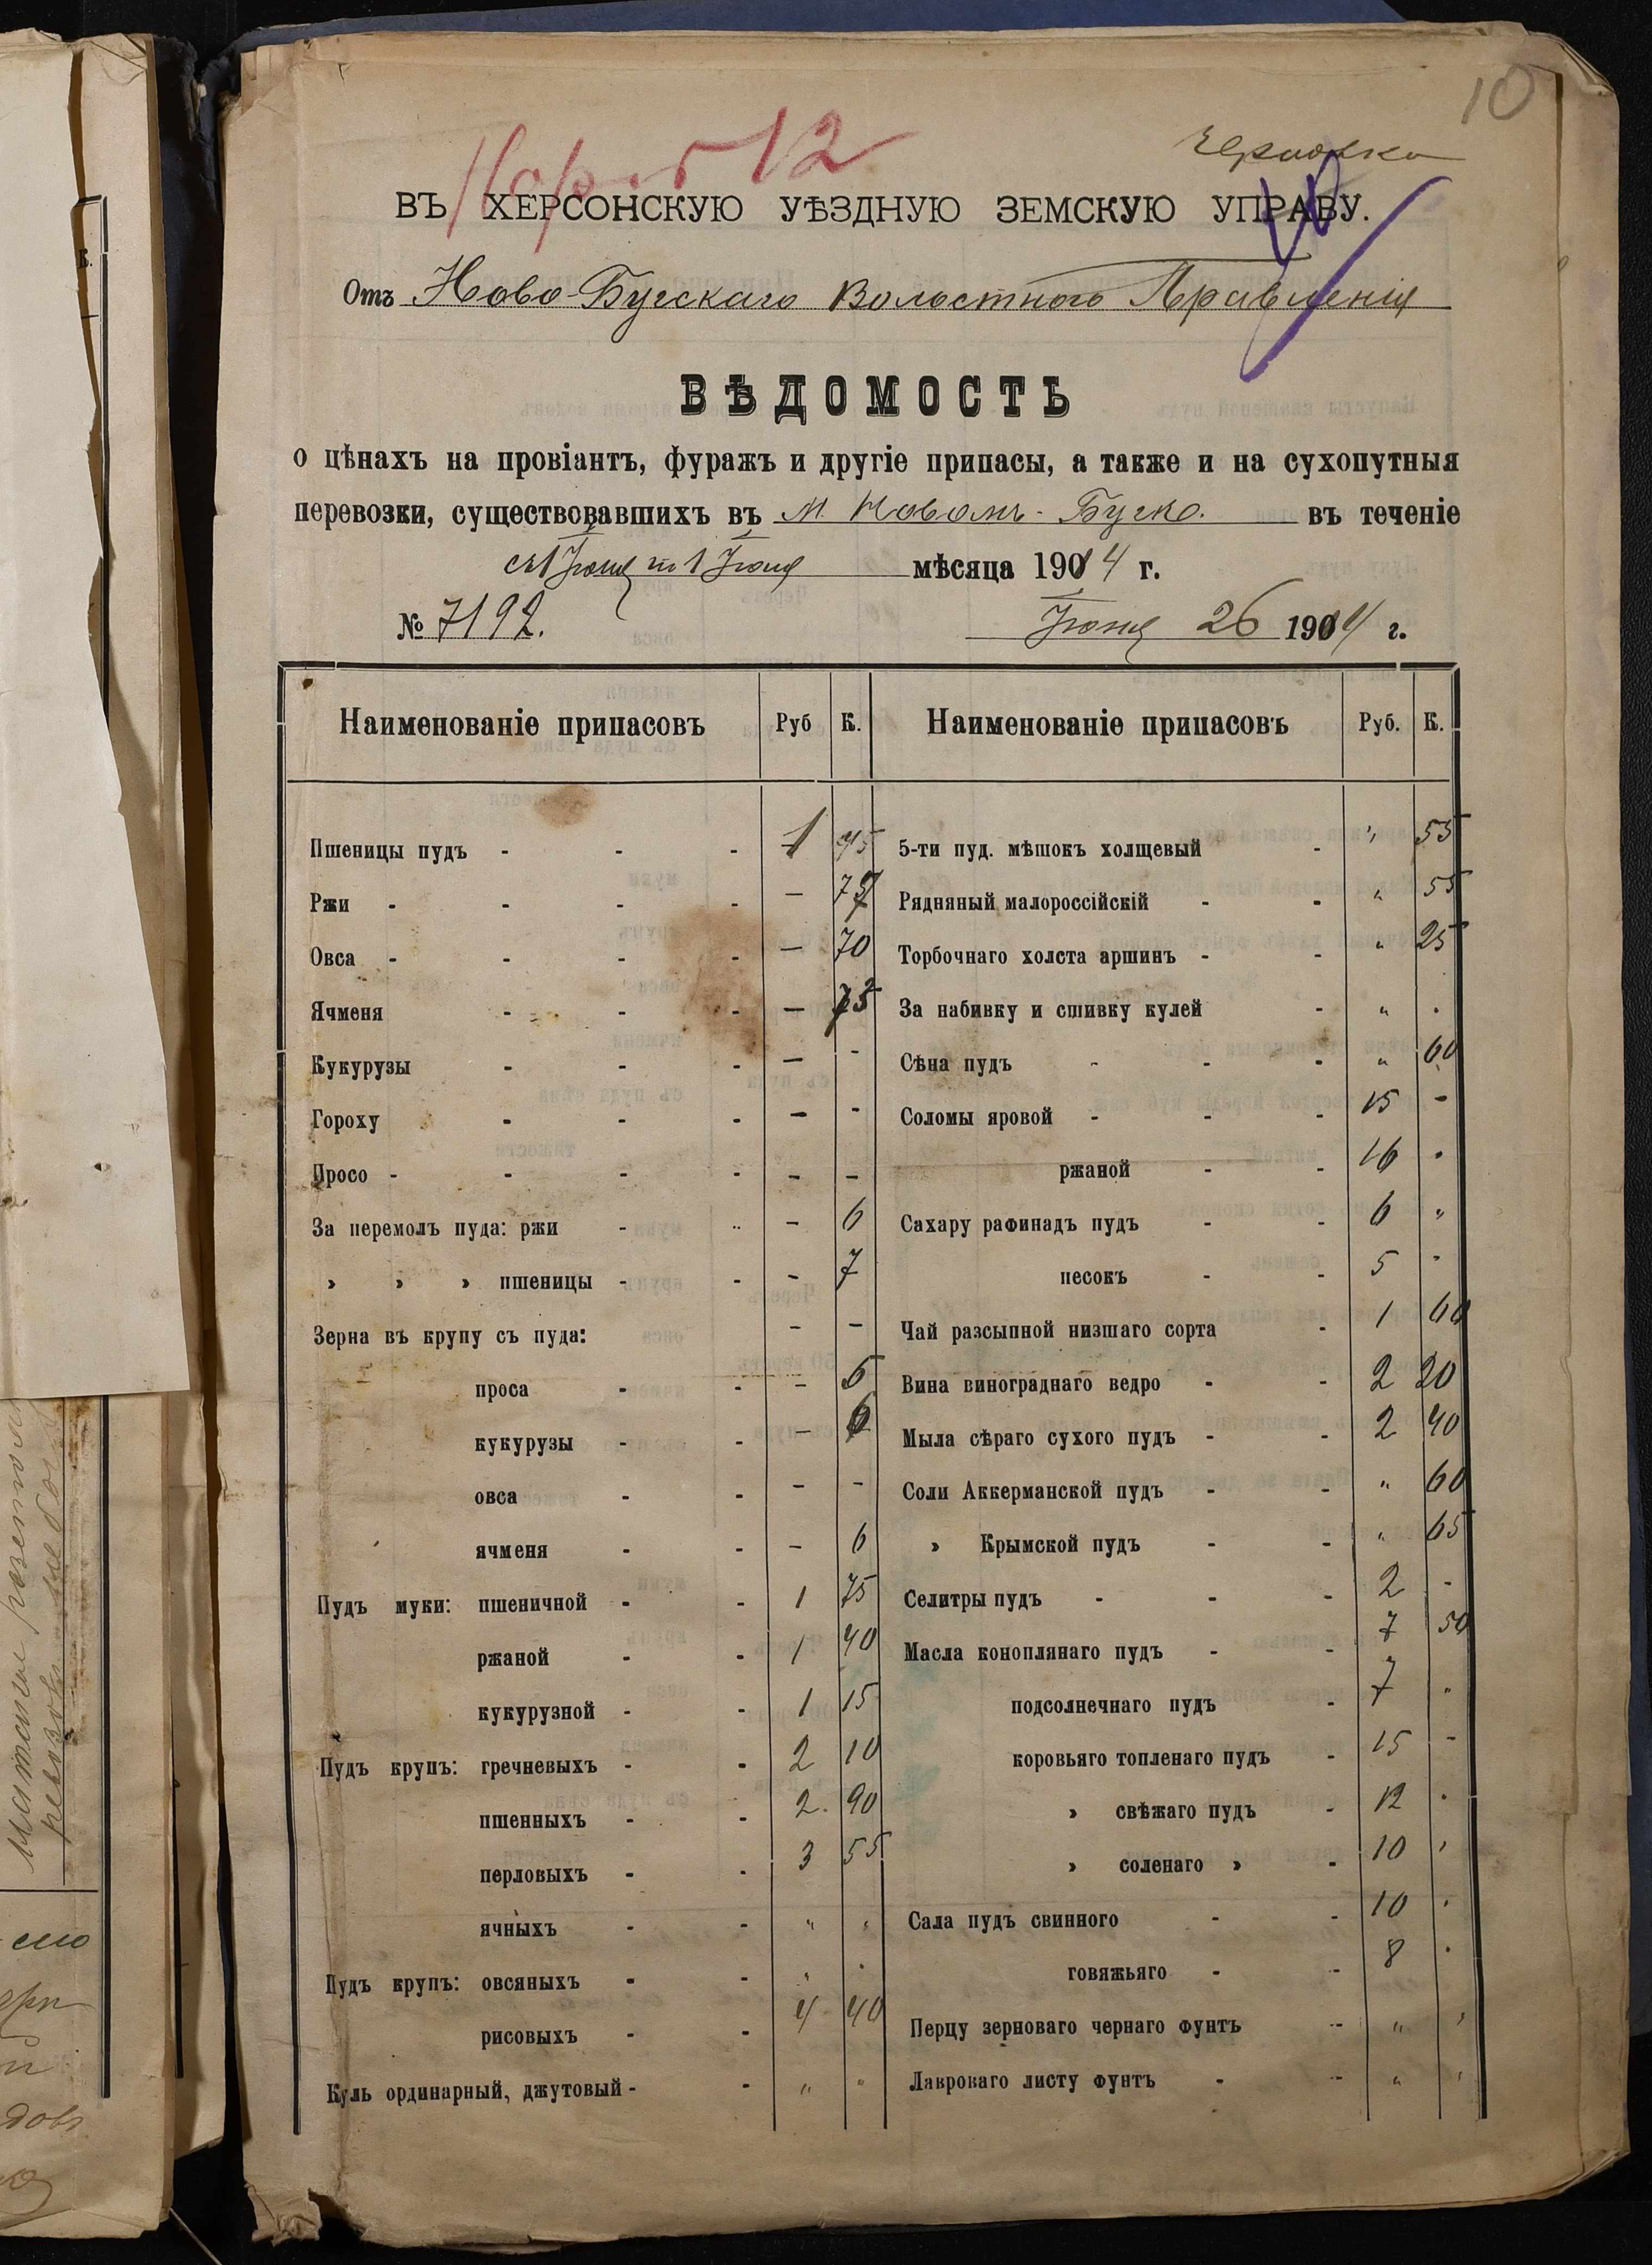 10
12
ВЪ ХЕРСОНСКУЮ УѢЗДНУЮ ЗЕМСКУЮ УПРАВУ.
Отъ Ново-Бугскаго Волостного Правленія
ВѢДОМОСТЬ
о цѣнахъ на провіантъ, фуражъ и другіе припасы, а также и на сухопутныя
перевозки, существовавшихъ въ м. Новомъ-Буге. въ теченіе
мѣсяца 1914 г.
№ 7192. 26 1914 г.
Наименованіе припасовъ Руб К. Наименованіе припасовъ Руб. К.
Пшеницы пудъ - - - 1 5-ти пуд. мѣшокъ холщевый - " 55
Ржи - - - - — Рядняный малороссійскій - - " 55
Овса - - - - — 70 Торбочнаго холста аршинъ - - " 25
Ячменя - - - — За набивку и сшивку кулей - " "
Кукурузы - - - — - Сѣна пудъ - - - " 60
Гороху - - - — - Соломы яровой - - - 15 -
Просо - - - - - - ржаной - - 16 "
За перемолъ пуда: ржи - - - 6 Сахару рафинадъ пудъ - - 6 "
» » » пшеницы - - - 7 песокъ - - 5 -
Зерна въ крупу съ пуда: - - Чай разсыпной низшаго сорта - 1 60
проса - - - 6 Вина винограднаго ведро - - 2 20
кукурузы - - — 6 Мыла сѣраго сухого пудъ - - 2 40
овса - - - - Соли Аккерманской пудъ - - " 60
ячменя - - - 6 » Крымской пудъ - - " 65
Пудъ муки: пшеничной - - 1 75 Селитры пудъ - - - 2 -
ржаной - - 1 40 Масла коноплянаго пудъ - - 7 50
кукурузной - - 1 15 подсолнечнаго пудъ - 7 "
Пудъ крупъ: гречневыхъ - - 2 10 коровьяго топленаго пудъ - 15 -
пшенныхъ - - 2. 90 » свѣжаго пудъ - 12 "
перловыхъ - - 3 55 » соленаго » - 10 "
ячныхъ - - " " Сала пудъ свинного - - 10 "
Пудъ крупъ: овсяныхъ - - " " говяжьяго - - 8 "
рисовыхъ - - 4 40 Перцу зерноваго чернаго фунтъ - " "
Куль ординарный, джутовый - - " " Лавроваго листу фунтъ - - " "